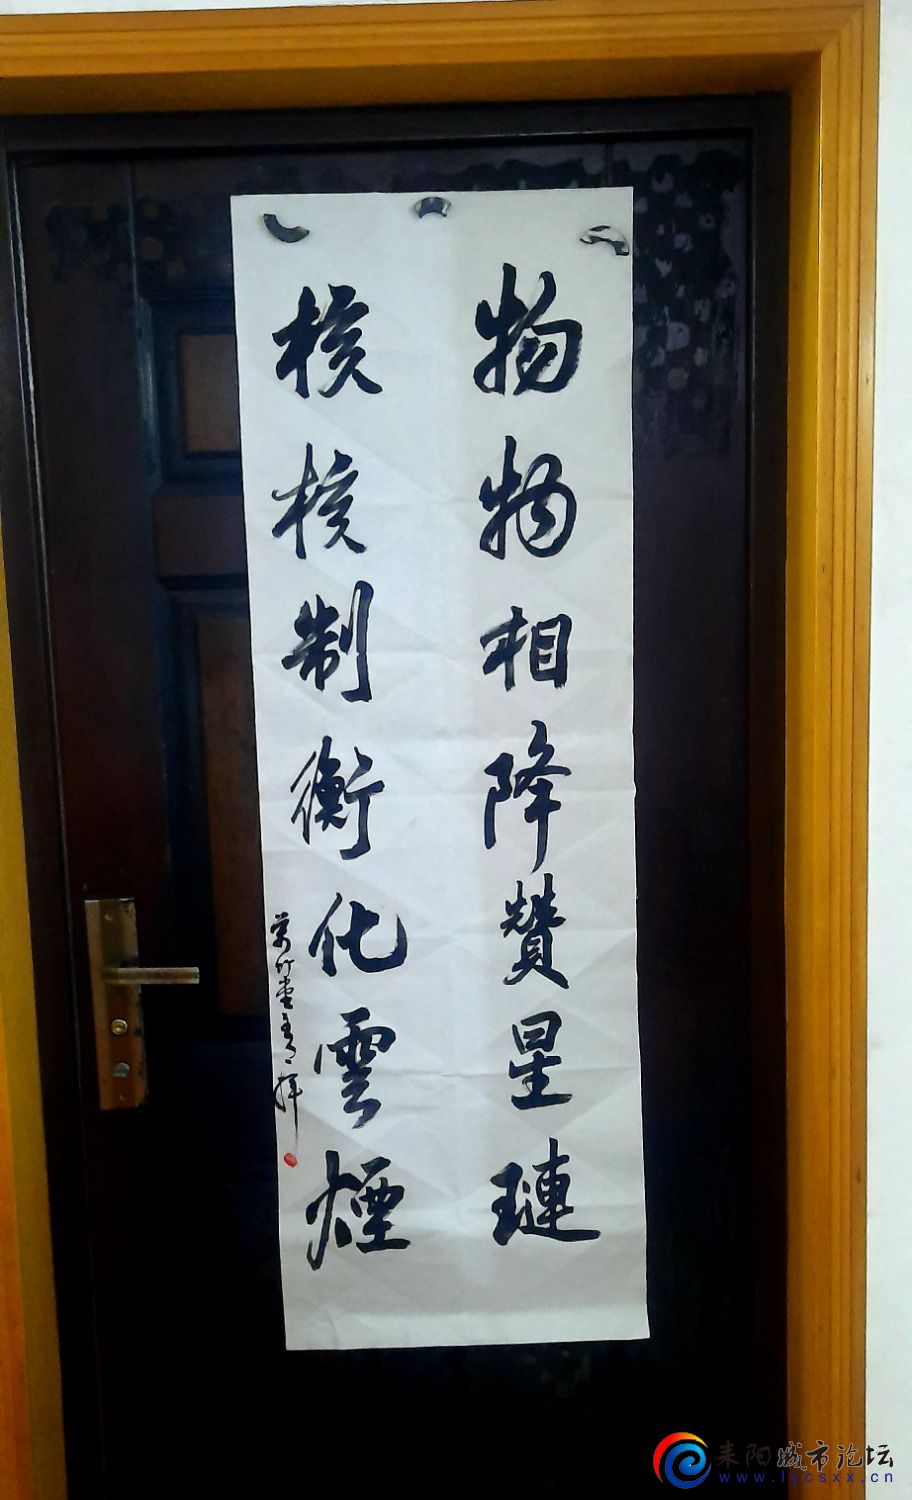 物物相降贊星璉
核核制衡化雲煙
耒阳城市论坛
www.lycsxx.cn